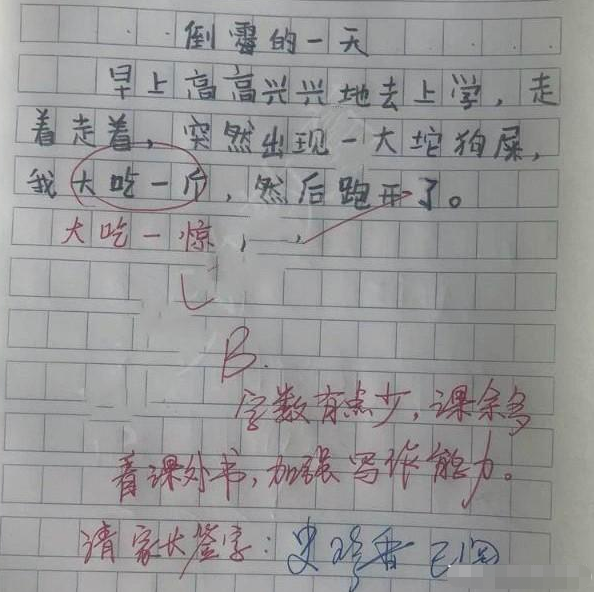 倒霉的一天
早上高高兴兴地去上学，走
着走着，突然出现一大坨狗屎，
我大吃一斤，然后跑开了。
大吃一惊
B.
字数有点少，课余多
看课外书，加强写作能力。
请家长签字：史珍香 已阅